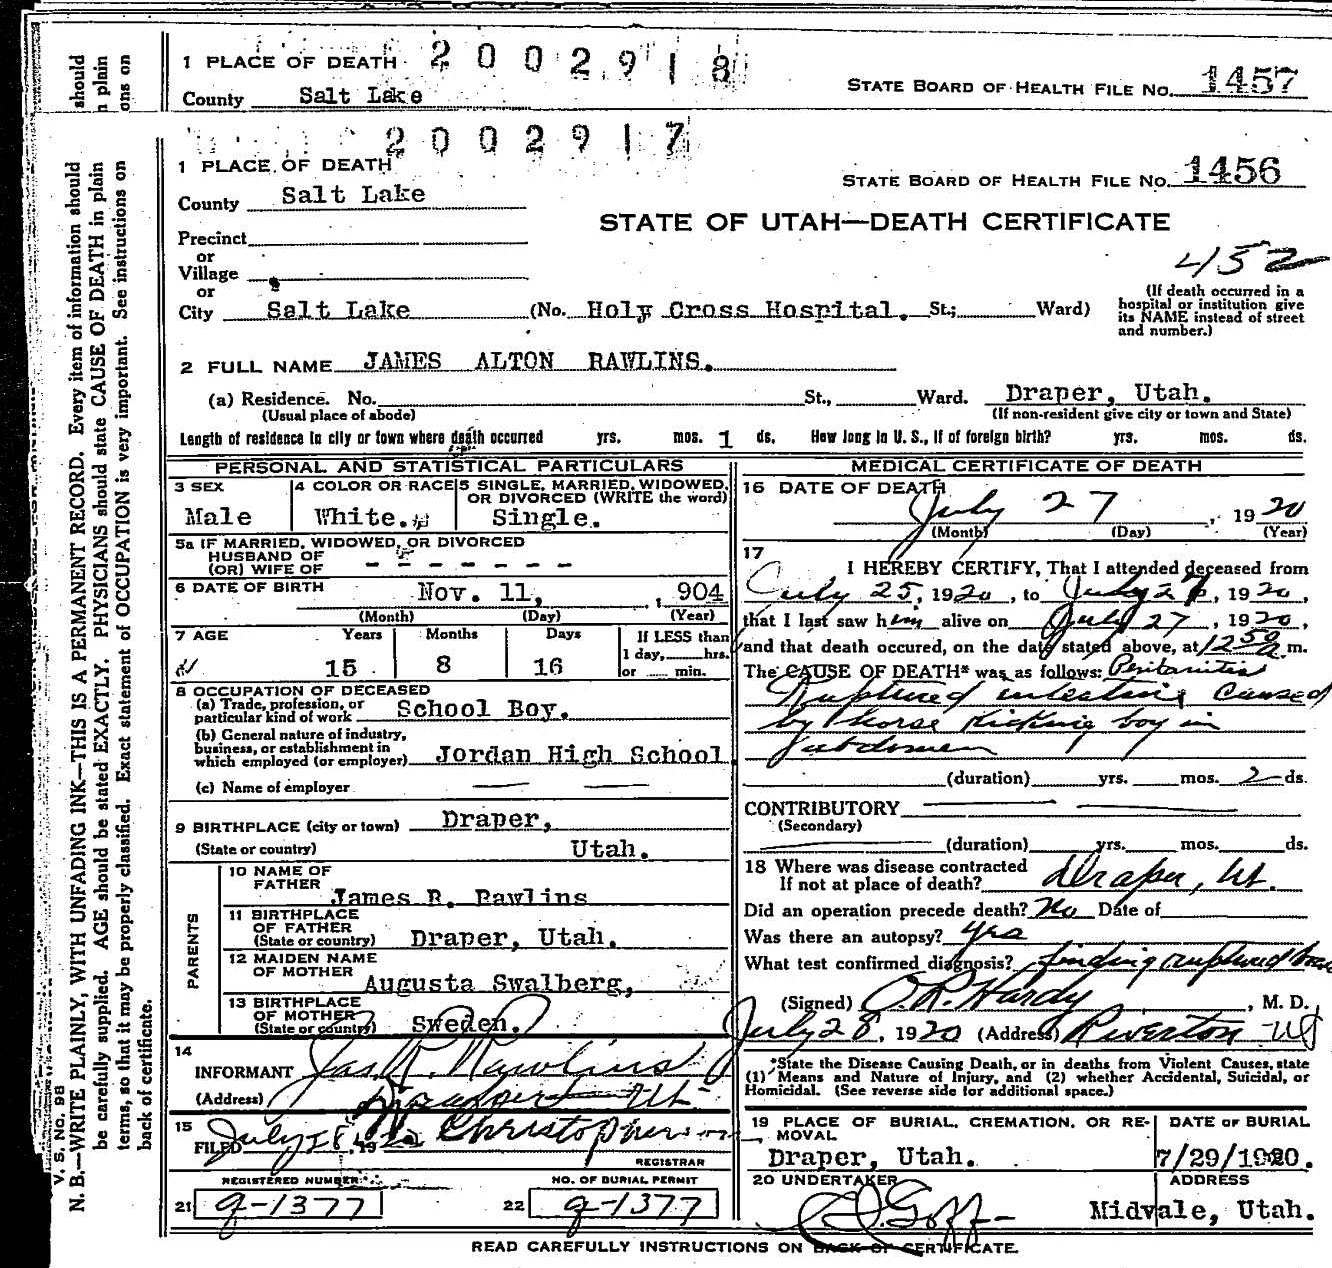 1 PLACE OF DEATH 2002918
STATE BOARD OF HEALTH FILE NO. 1457
County Salt Lake
should
n plain
ons on
2002917
1 PLACE OF DEATH
STATE BOARD OF HEALTH FILE NO. 1456
County Salt Lake
STATE OF UTAH—DEATH CERTIFICATE
Precinct
or
452
Village
or
(If death occurred in a hospital or institution give its NAME instead of street and number.)
City Salt Lake (No. Holy Cross Hospital. St.; Ward)
2 FULL NAME JAMES ALTON RAWLINS.
(a) Residence. No. St., Ward. Draper, Utah.
(Usual place of abode) (If non-resident give city or town and State)
Length of residence in city or town where death occurred yrs. mos. 1 ds. How long in U. S., if of foreign birth? yrs. mos. ds.
PERSONAL AND STATISTICAL PARTICULARS
3 SEX 4 COLOR OR RACE 5 SINGLE, MARRIED, WIDOWED, OR DIVORCED (WRITE the word)
Male White. Single.
5a IF MARRIED, WIDOWED, OR DIVORCED
HUSBAND OF
(OR) WIFE OF - - - - - - -
6 DATE OF BIRTH Nov. 11, , 904
(Month) (Day) (Year)
7 AGE Years Months Days If LESS than
1 day, hrs.
15 8 16 or min.
8 OCCUPATION OF DECEASED
(a) Trade, profession, or
particular kind of work School Boy.
(b) General nature of industry,
business, or establishment in
which employed (or employer) Jordan High School
(c) Name of employer
9 BIRTHPLACE (city or town) Draper,
(State or country) Utah.
PARENTS
10 NAME OF
FATHER James R. Rawlins
11 BIRTHPLACE
OF FATHER
(State or country) Draper, Utah.
12 MAIDEN NAME
OF MOTHER Augusta Swalberg,
13 BIRTHPLACE
OF MOTHER
(State or country) Sweden.
14
INFORMANT Jas. R. Rawlins
(Address) Draper Ut.
15
FILED July 28, 1920 Christopherson
REGISTRAR
REGISTERED NUMBER NO. OF BURIAL PERMIT
21 g-1377 22 g-1377
MEDICAL CERTIFICATE OF DEATH
16 DATE OF DEATH
July 27, 1920
(Month) (Day) (Year)
17
I HEREBY CERTIFY, That I attended deceased from
July 25, 1920, to July 27, 1920,
that I last saw him alive on July 27, 1920,
and that death occured, on the date stated above, at 12 50 a m.
The CAUSE OF DEATH* was as follows: Peritonitis
Ruptured intestine caused
by horse kicking boy in
abdomen
(duration) yrs. mos. 2 ds.
CONTRIBUTORY
(Secondary)
(duration) yrs. mos. ds.
18 Where was disease contracted
If not at place of death? Draper, Ut.
Did an operation precede death? No Date of
Was there an autopsy? Yes
What test confirmed diagnosis? finding ruptured
(Signed) O. R. Hardy, M. D.
July 28, 1920 (Address) Riverton Ut
*State the Disease Causing Death, or in deaths from Violent Causes, state
(1) Means and Nature of Injury, and (2) whether Accidental, Suicidal, or
Homicidal. (See reverse side for additional space.)
19 PLACE OF BURIAL, CREMATION, OR RE-
MOVAL
DATE OF BURIAL
Draper, Utah. 7/29/1920.
20 UNDERTAKER ADDRESS
Goff Midvale, Utah.
READ CAREFULLY INSTRUCTIONS ON BACK OF CERTIFICATE.
V. S. No. 98
N. B.—WRITE PLAINLY, WITH UNFADING INK—THIS IS A PERMANENT RECORD. Every item of information should
be carefully supplied. AGE should be stated EXACTLY. PHYSICIANS should state CAUSE OF DEATH in plain
terms, so that it may be properly classified. Exact statement of OCCUPATION is very important. See instructions on
back of certificate.